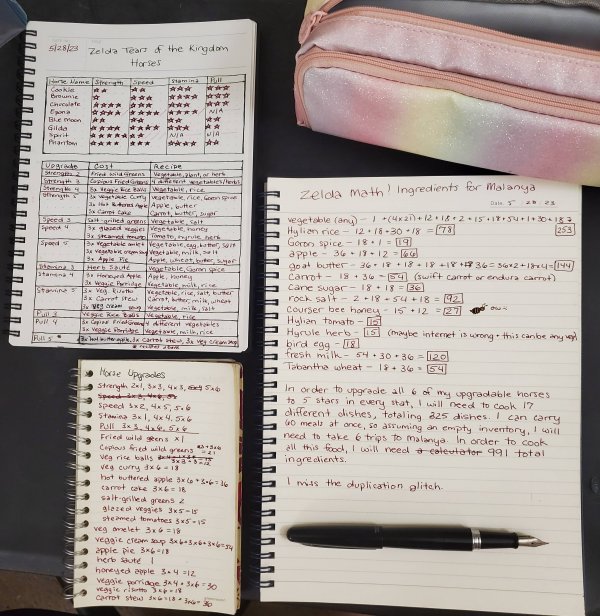 5/28/23
Zelda Tears of the Kingdom
Horses
Horse Name Strength Speed Stamina Pull
Cookie
Brownie
Chocolate
Epona N/A
Blue Moon
Gilda
Spirit N/A N/A
Phantom
Upgrade Cost Recipe
Strength 2 Fried Wild Greens Vegetable, plant, or herb
Strength 3 Copious Fried Greens 4 different vegetables/herbs
Strength 4 3x Veggie Rice Balls Vegetable, rice
Strength 5 3x Vegetable Curry Vegetable, rice, Goron spice
3x Hot Buttered Apple Apple, butter
3x Carrot Cake Carrot, butter, sugar
Speed 3 Salt-grilled greens Vegetable, salt
Speed 4 3x glazed veggies Vegetable, honey
3x steamed tomato Tomato, hyrule herb
Speed 5 3x Vegetable omelet Vegetable, egg, butter, salt
3x Vegetable cream soup Vegetable, milk, salt
3x Apple Pie Apple, wheat, butter, sugar
Stamina 3 Herb Sauté Vegetable, Goron spice
Stamina 4 3x Honeyed Apple Apple, honey
3x Veggie Porridge Vegetable, milk, rice
Stamina 5 3x Veg Risotto Vegetable, rice, salt, butter
3x Carrot stew Carrot, butter, milk, wheat
3x veg cream soup Vegetable, milk, salt
Pull 3 Veggie Rice Balls Vegetable, rice
Pull 4 3x Copious Fried Greens 4 different vegetables
3x Veggie Porridge Vegetable, milk, rice
Pull 5 * 3x hot butter apple, 3x Carrot stew, 3x veg cream soup
Horse Upgrades
Strength 2x1, 3x3, 4x3, 5x6
Speed 3x2, 4x5, 5x6
Stamina 3x1, 4x4, 5x6
Pull 3x3, 4x6, 5x6
Fried wild greens x1
Copious fried wild greens
= 21
veg rice balls
veg curry 3x6=18
hot buttered apple 3x6+3x6=36
carrot cake 3x6=18
salt-grilled greens 2
glazed veggies 3x5=15
steamed tomatoes 3x5=15
veg omelet 3x6=18
veggie cream soup 3x6+3x6+3x6=54
apple pie 3x6=18
herb saute 1
honeyed apple 3x4=12
veggie porridge 3x4+3x6=30
veggie risotto 3x6=18
carrot stew 3x6=18+3x6=36
Zelda Math! Ingredients for Malanya
Date 5 28 23
vegetable (any) - 1+(4x21)+12+18+2+15+18+54+1+30+18
253
Hylian rice - 12+18+30+18 = 78
Goron spice - 18+1= 19
apple - 36+18+12= 66
goat butter - 36+18+18+18+18+36= 36x2+18x4= 144
Carrot - 18+36= 54 (swift carrot or endura carrot)
Cane sugar - 18+18= 36
rock salt - 2+18+54+18= 92
Courser bee honey - 15+12= 27
Hylian tomato - 15
Hyrule herb - 15 (maybe internet is wrong + this can be any veg)
bird egg - 18
fresh milk - 54+30+36= 120
Tabantha wheat - 18+36= 54
In order to upgrade all 6 of my upgradable horses
to 5 stars in every stat, I will need to cook 17
different dishes, totaling 325 dishes. I can carry
60 meals at once, so assuming an empty inventory, I will
need to take 6 trips to malanya. In order to cook
all this food, I will need a calculator 991 total
ingredients.
I miss the duplication glitch.